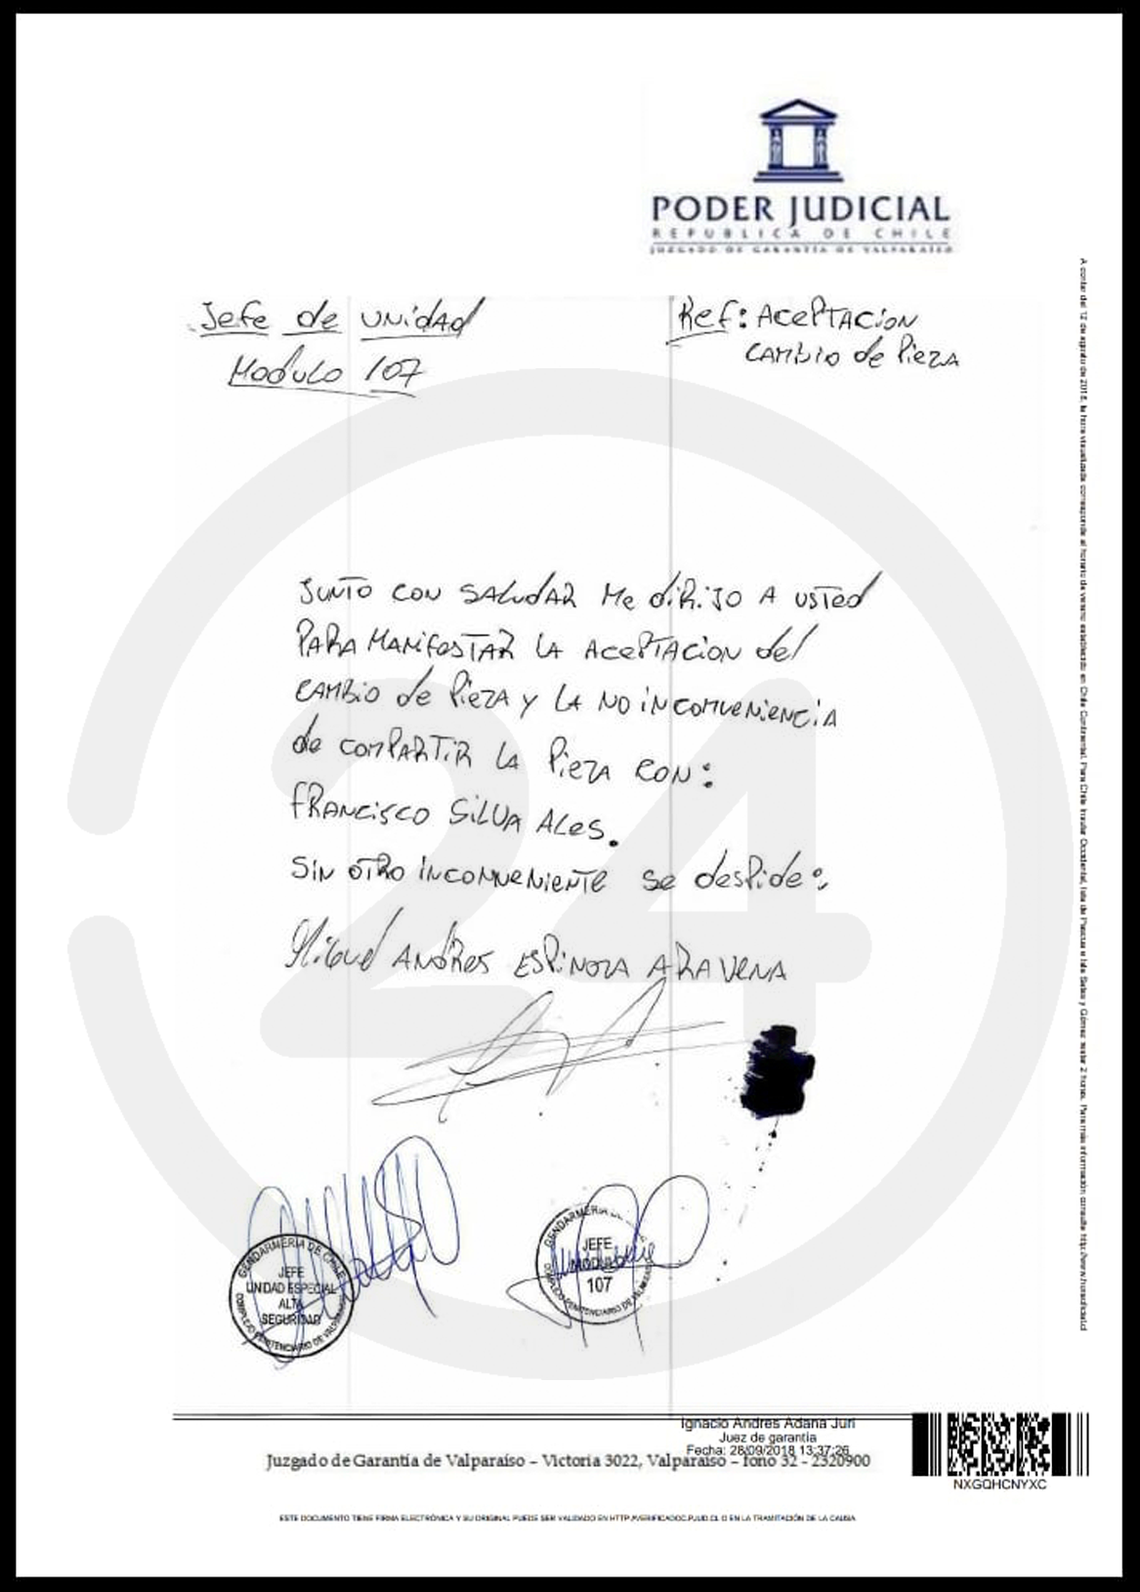 PODER JUDICIAL
REPUBLICA DE CHILE
JUZGADO DE GARANTÍA DE VALPARAISO
Jefe de UNidAd
Modulo 107
Ref: ACePTACioN
CAMBio de PiezA
JUNTO CON SALUdAR Me diRiJO A USTed
PARA MANifesTAR LA ACePTACION del
CAMBio de PiezA y LA NO iNCONVeNieNCiA
de COMPARTiR LA PiezA CON:
fRANCisCO SiLVA ALes.
SiN OTRO iNCONVeNieNTe se despide:
Miguel ANdRes ESPiNOZA ARAVeNA
24
GENDARMERIA DE CHILE
JEFE
UNIDAD ESPECIAL
ALTA
SEGURIDAD
COMPLEJO PENITENCIARIO DE VALPARAISO
GENDARMERIA
JEFE
MODULO
107
COMPLEJO PENITENCIARIO DE VALPARAISO
A contar del 12 de agosto de 2018, la hora visualizada corresponde al horario de verano establecido en Chile Continental. Para Chile Insular Occidental, Isla de Pascua e Isla Salas y Gómez restar 2 horas. Para más información consulte http://www.horaoficial.cl
Ignacio Andres Adana Juri
Juez de garantía
Fecha: 28/09/2018 13:37:26
Juzgado de Garantía de Valparaíso – Victoria 3022, Valparaíso – fono 32 - 2320900
NXGQHCNYXC
ESTE DOCUMENTO TIENE FIRMA ELECTRÓNICA Y SU ORIGINAL PUEDE SER VALIDADO EN HTTP://VERIFICADOC.PJUD.CL O EN LA TRAMITACIÓN DE LA CAUSA